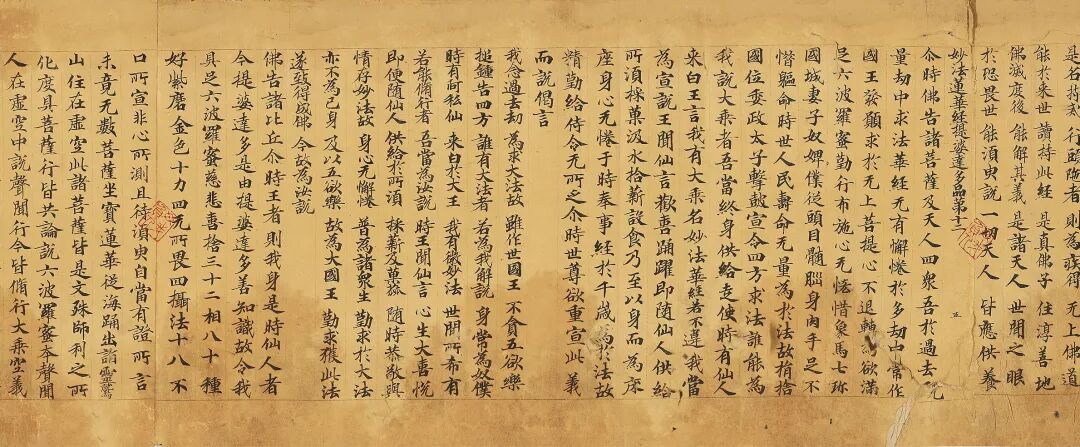 是名持戒 行頭陀者 則為疾得 无上佛道
能於來世 讀持此經 是真佛子 住淳善地
佛滅度後 能解其義 是諸天人 世間之眼
於恐畏世 能須臾說 一切天人 皆應供養
妙法蓮華經提婆達多品第十二
五
尒時佛告諸菩薩及天人四眾吾於過去无
量劫中求法華經无有懈惓於多劫中常作
國王發願求於无上菩提心不退轉為欲滿
足六波羅蜜勤行布施心无悋惜象馬七珎
國城妻子奴婢僕從頭目髓腦身肉手足不
惜軀命時世人民壽命无量為於法故捐捨
國位委政太子擊鼓宣令四方求法誰能為
我說大乘者吾當終身供給走使時有仙人
來白王言我有大乘名妙法華經若不違我當
為宣說王聞仙言歡喜踊躍即隨仙人供給
所須採菓汲水拾薪設食乃至以身而為床
座身心无惓于時奉事經於千歲為於法故
精勤給侍令无所乏尒時世尊欲重宣此義
而說偈言
我念過去劫 為求大法故 雖作世國王 不貪五欲樂
搥鍾告四方 誰有大法者 若為我解說 身當為奴僕
時有阿私仙 來白於大王 我有微妙法 世間所希有
若能脩行者 吾當為汝說 時王聞仙言 心生大喜悅
即便隨仙人 供給於所須 採薪及菓蓏 隨時恭敬與
情存妙法故 身心无懈惓 普為諸眾生 勤求於大法
亦不為己身 及以五欲樂 故為大國王 勤求獲此法
遂致得成佛 今故為汝說
佛告諸比丘尒時王者則我身是時仙人者
今提婆達多是由提婆達多善知識故令我
具足六波羅蜜慈悲喜捨三十二相八十種
好紫磨金色十力四无所畏四攝法十八不
口所宣非心所測且待須臾自當有證所言
未竟无數菩薩坐寶蓮華從海踊出詣靈鷲
山住在虛空此諸菩薩皆是文殊師利之所
化度具菩薩行皆共論說六波羅蜜本聲聞
人在虛空中說聲聞行今皆脩行大乘空義